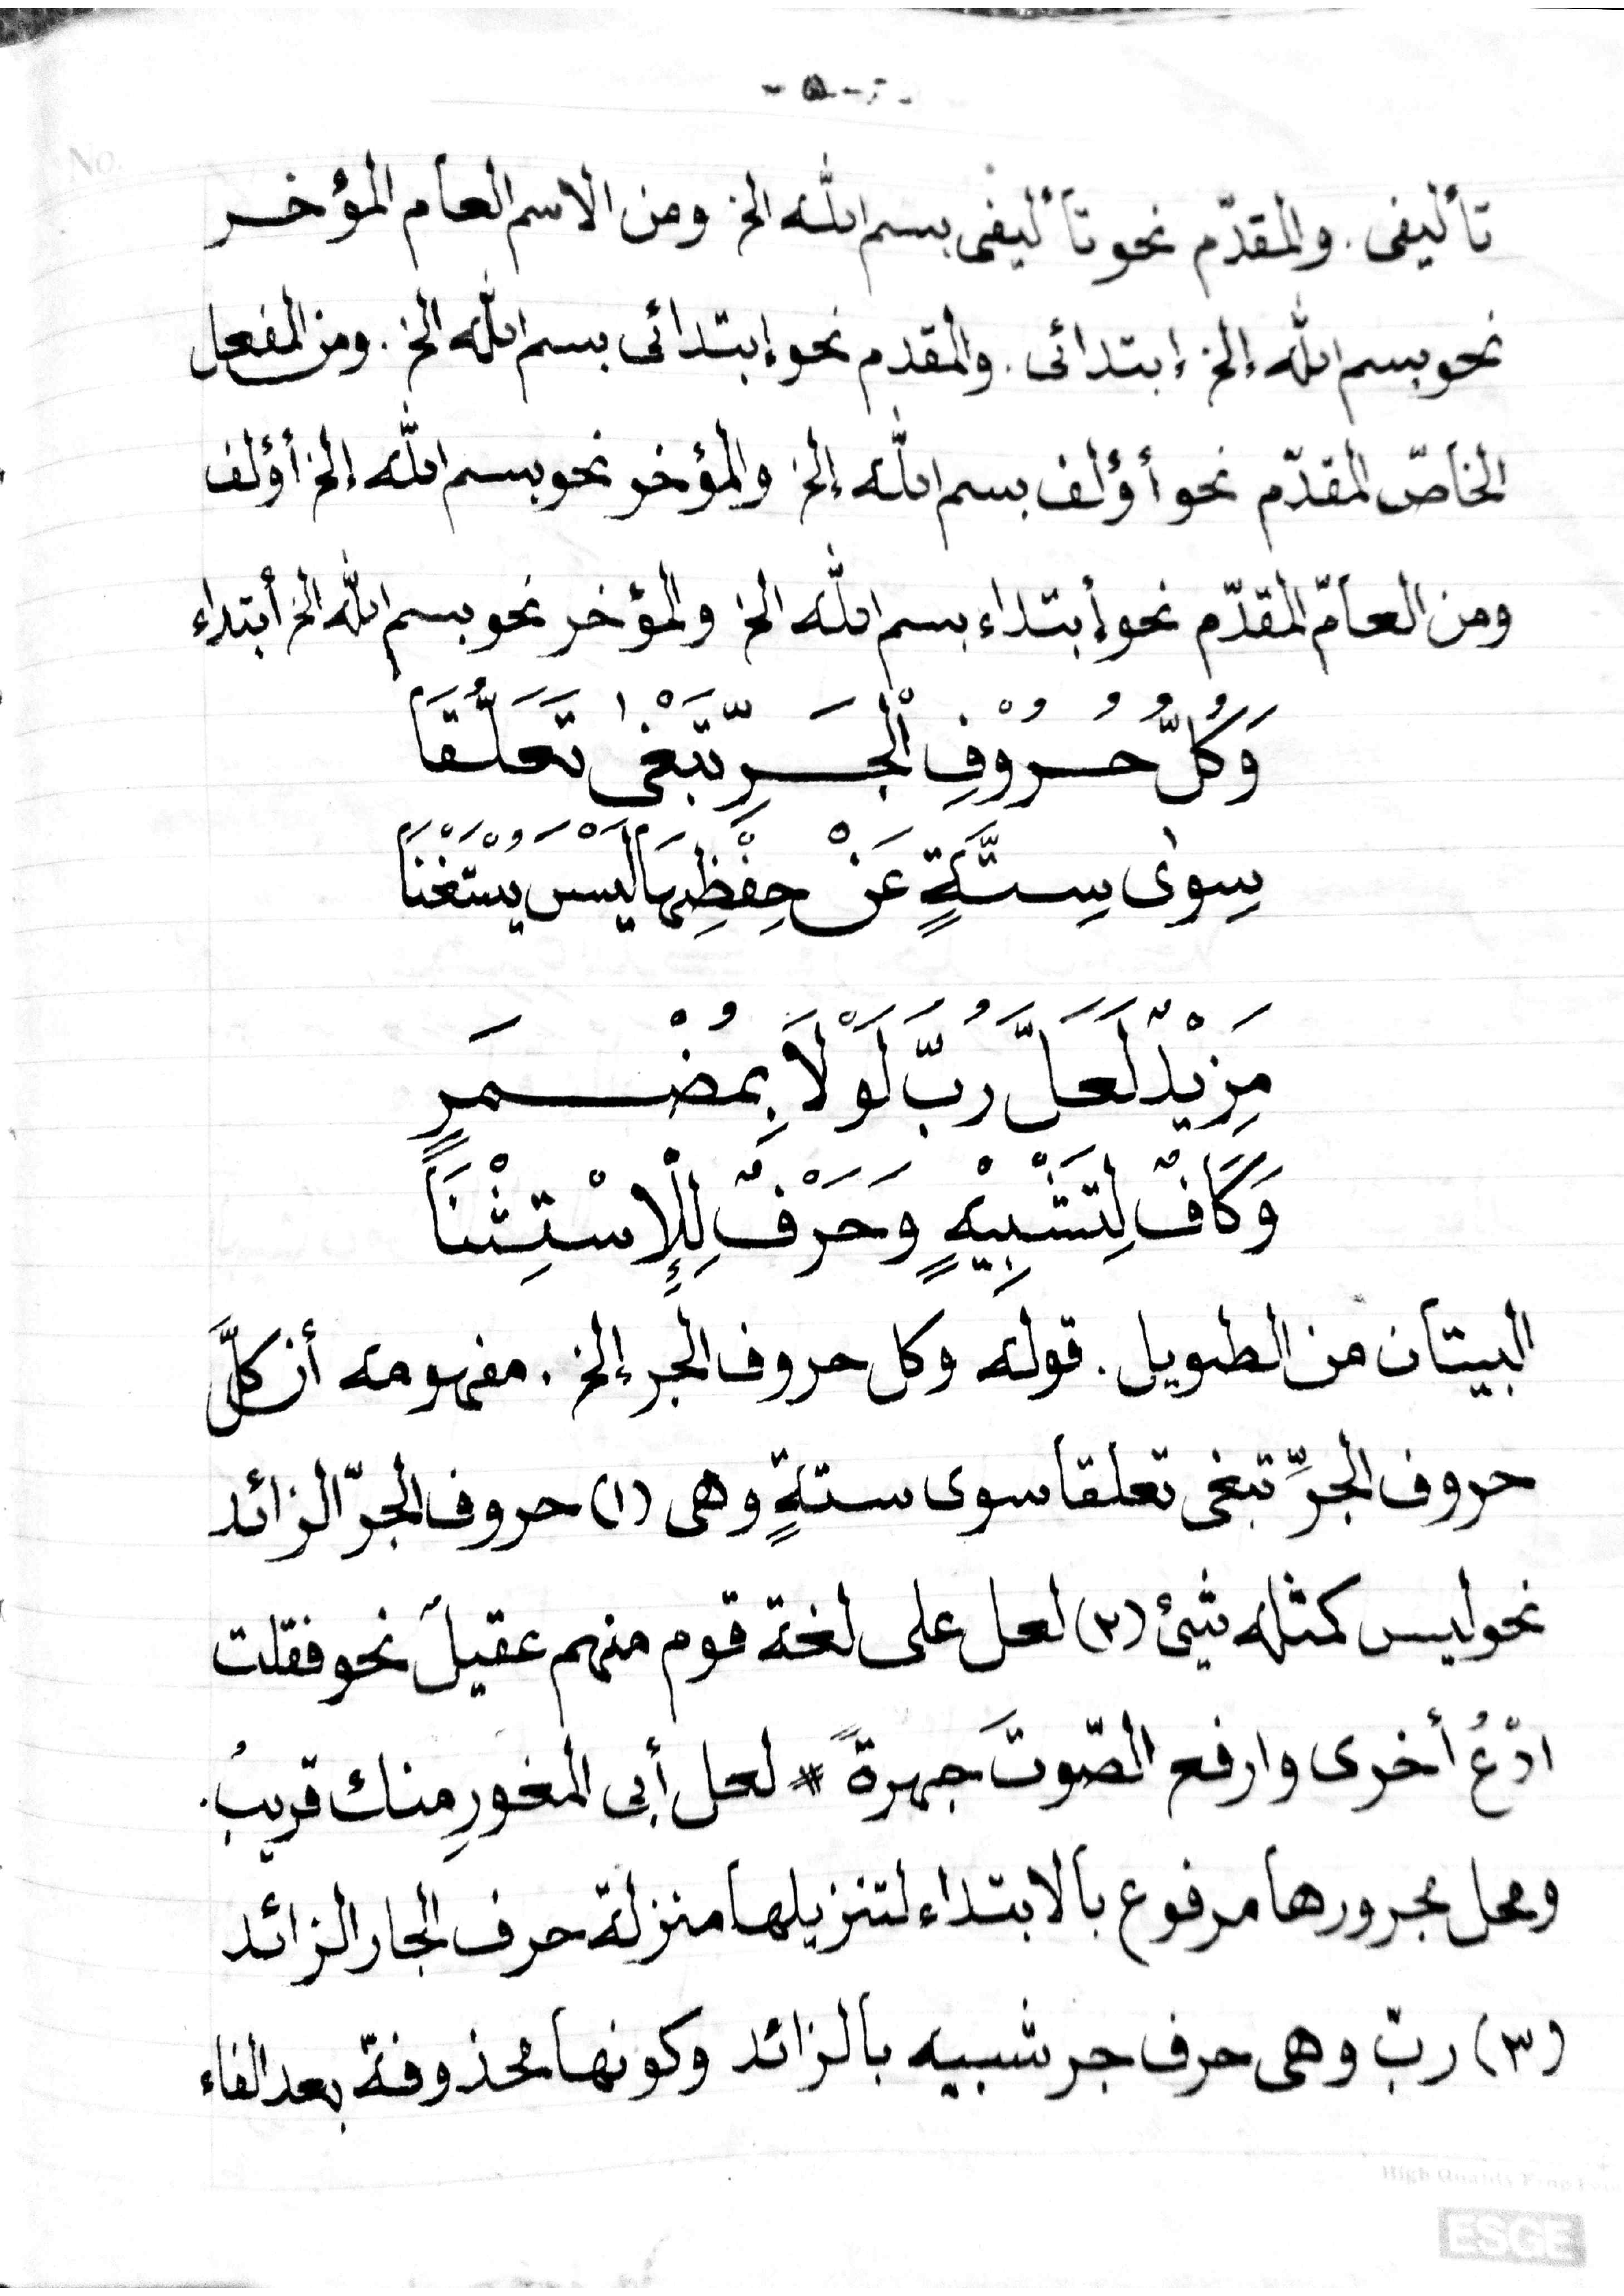 - ٥ -
تأليفى . والمقدّم نحو تأليفى بسم الله الخ ومن الاسم العام المؤخر
نحو بسم الله إلخ إبتدائى . والمقدم نحو إبتدائى بسم الله الخ . ومن المفعل
الخاصّ المقدّم نحو أؤلف بسم الله إلخ والمؤخر نحو بسم الله إلخ أؤلف
ومن العامّ المقدّم نحو أبتداء بسم الله الخ والمؤخر نحو بسم الله الخ أبتداء
وَكُلُّ حُرُوْفِ الْجَرِّ تَبْغٰى تَعَلُّقَا
سِوٰى سِتَّةٍ عَنْ حِفْظِهَا لَيْسَ يُسْتَغْنَا
مَزِيْدٌ لَعَلَّ رُبَّ لَوْلَا بِمُضْمَرٍ
وَكَافٌ لِتَشْبِيْهٍ وَحَرْفٌ لِلْإِسْتِثْنَا
البيتان من الطويل . قوله وكل حروف الجر إلخ . مفهومه أن كلَّ
حروف الجرِّ تبغى تعلقا سوى ستةٍ وهى (١) حروف الجرّ الزائد
نحو ليس كمثله شيئ (٢) لعل على لغة قوم منهم عقيل نحو فقلت
ادْعُ أخرى وارفع الصّوتَ جهرةً * لعل أبى المغورِ منك قريبُ.
ومحل مجرورها مرفوع بالابتداء لتنزيلها منزلة حرف الجار الزائد
(٣) ربّ وهى حرف جر شبيه بالزائد وكونها محذوفة بعد الفاء
ESGE